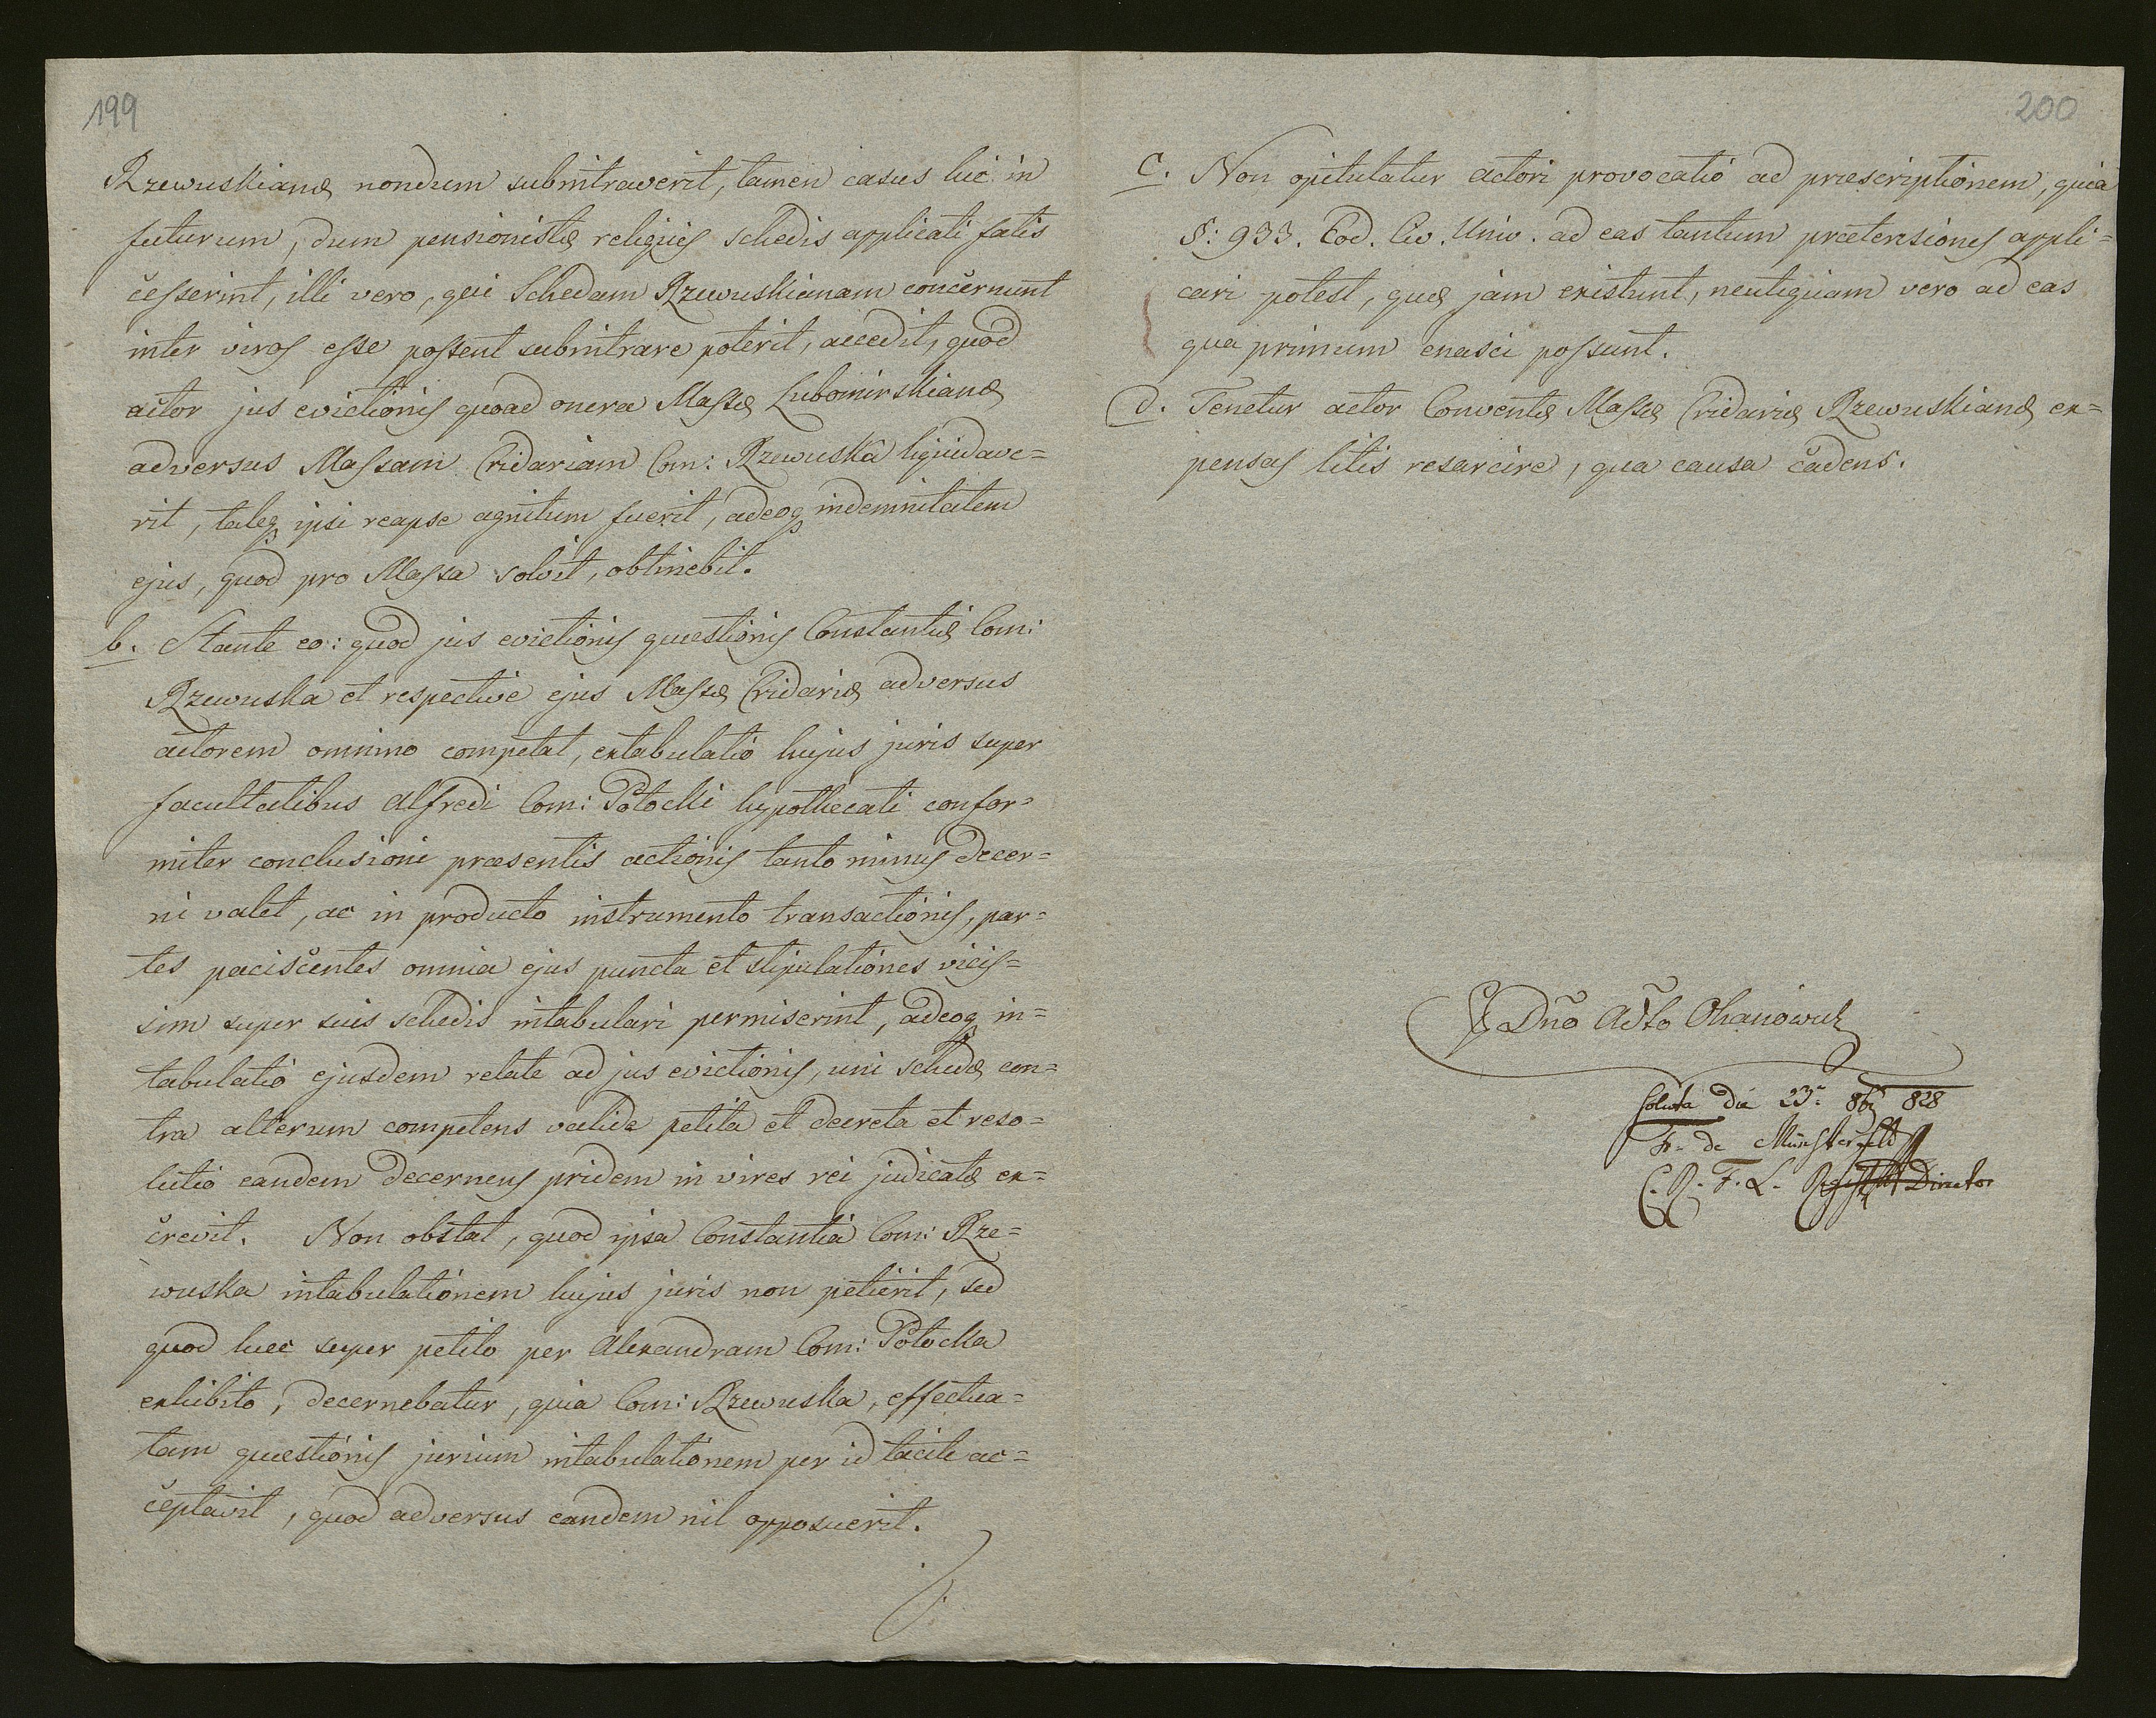 199
Rzewuskianæ nondum subintraverit, tamen casus hic in
futurum, dum pensionistæ reliquis schedis applicati fatis
cesserint, illi vero, qui Schedam Rzewuskianam concernunt
inter vivos esse possent subintrare poterit, accedit, quod
actor jus evictionis quoad onera Massæ Lubomirskianæ
adversus Massam Cridariam Com: Rzewuska liquidave=
rit, taleq ipsi reapse agnitum fuerit, adeoq indemnitatem
ejus, quod pro Massa solvit, obtinebit.
b. Stante eo: quod jus evictionis quæstionis Constantiæ Com:
Rzewuska et respective ejus Massæ Cridariæ adversus
actorem omnino competat, extabulatio hujus juris super
facultatibus Alfredi Com: Potocki hypothecati confor=
miter conclusioni præsentis actionis tanto minus decer=
ni valet, ac in producto instrumento transactionis, par=
tes paciscentes omnia ejus puncta et stipulationes vicis=
sim super suis schedis intabulari permiserint, adeoq in=
tabulatio ejusdem relate ad jus evictionis, uni schedæ con=
tra alterum competens valide petita et decreta et reso=
lutio eandem decernens pridem in vires rei judicatæ ex=
crevit. Non obstat, quod ipsa Constantia Com: Rze=
wuska intabulationem hujus juris non petierit, sed
quod hæc super petito per Alexandram Com: Potocka
exhibito, decernebatur, quia Com: Rzewuska, effectua=
tam quæstionis jurium intabulationem per id tacite ac=
ceptavit, quod adversus eandem nil opposuerit.
200
c. Non opitulatur actori provocatio ad præscriptionem, quia
§: 933. Cod. Civ. Univ. ad eas tantum prætensiones appli=
cari potest, quæ jam existunt, neutiquam vero ad eas
qua primum enasci possunt.
d. Tenetur actor Conventæ Massæ Cridariæ Rzewuskianæ ex=
pensas litis resarcire, qua causa cadens.
Dño Adto
Soluta die 23a 8bi 828
F. de
C. R. F. L. Director